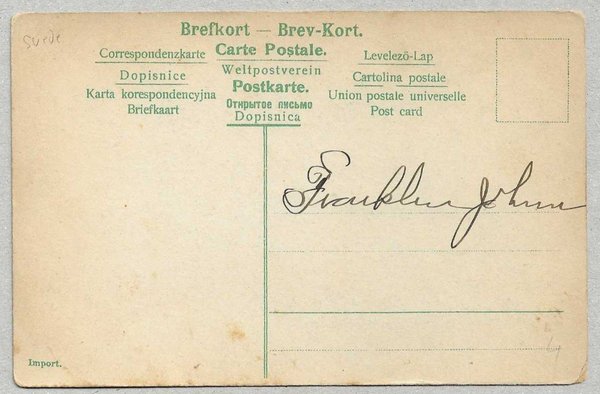 Suede
Brefkort — Brev-Kort.
Correspondenzkarte Carte Postale. Levelező-Lap
Dopisnice Weltpostverein Cartolina postale
Karta korespondencyjna Postkarte. Union postale universelle
Briefkaart Открытое письмо Post card
Dopisnica
Franklin John
Import.